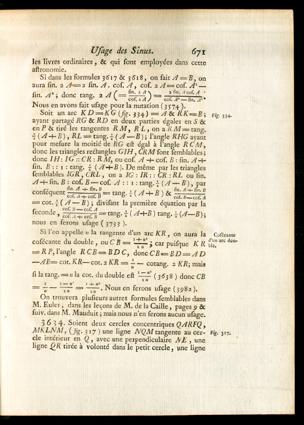 Usage des Sinus. 671
les livres ordinaires, & qui sont employées dans cette
astronomie.
Si dans les formules 3617 & 3618, on fait A = B, on
aura sin. 2 A = 2 sin. A. cos. A, cos. 2 A = cos. A² —
sin. A²; donc tang. 2 A (= sin. 2 A / cos. 2 A) = 2 sin. A cos. A / cos. A² — sin. A².
Nous en avons fait usage pour la nutation (3574).
Soit un arc KD = KG (fig. 334) = A & RK = B;
fig. 334.
ayant partagé RG & RD en deux parties égales en S &
en P & tiré les tangentes RM, RL, on a RM = tang.
½ (A + B), RL = tang. ½ (A — B); l'angle RHG ayant
pour mesure la moitié de RG est égal à l'angle RCM,
donc les triangles rectangles GIH, CRM sont semblables;
donc IH : IG :: CR : RM, ou cos. A + cos. B : sin. A +
sin. B :: 1 : tang. ½ (A + B). De même par les triangles
semblables IGR, CRL, on a IG : IR :: CR : RL ou sin.
A + sin. B : cos. B — cos. A :: 1 : tang. ½ (A — B), par
conséquent
= cot. ½ (A — B); divisant la premiere équation par la
seconde, = tang. ½ (A + B) tang. ½ (A — B);
nous en ferons usage (3793).
Si l'on appelle u la tangente d'un arc KR, on aura la
cosécante du double, ou CB = ; car puisque KR
= RF, l'angle RCB = BDC, donc CB = BD = AD
— AE = cot. KR — cot. 2 KR = — cotang. 2 KR; mais
si la tang. = u la cot. du double est (3638) donc CB
= . Nous en ferons usage (3982).
On trouvera plusieurs autres formules semblables dans
M. Euler, dans les leçons de M. de la Caille, pages 9 &
suiv. dans M. Mauduit; mais nous n'en ferons aucun usage.
3634. Soient deux cercles concentriques QARFQ,
MKLNM, (fig. 317) une ligne NQM tangente au cer-
fig. 317.
cle intérieur en Q, avec une perpendiculaire NE, une
ligne QR tirée à volonté dans le petit cercle, une ligne